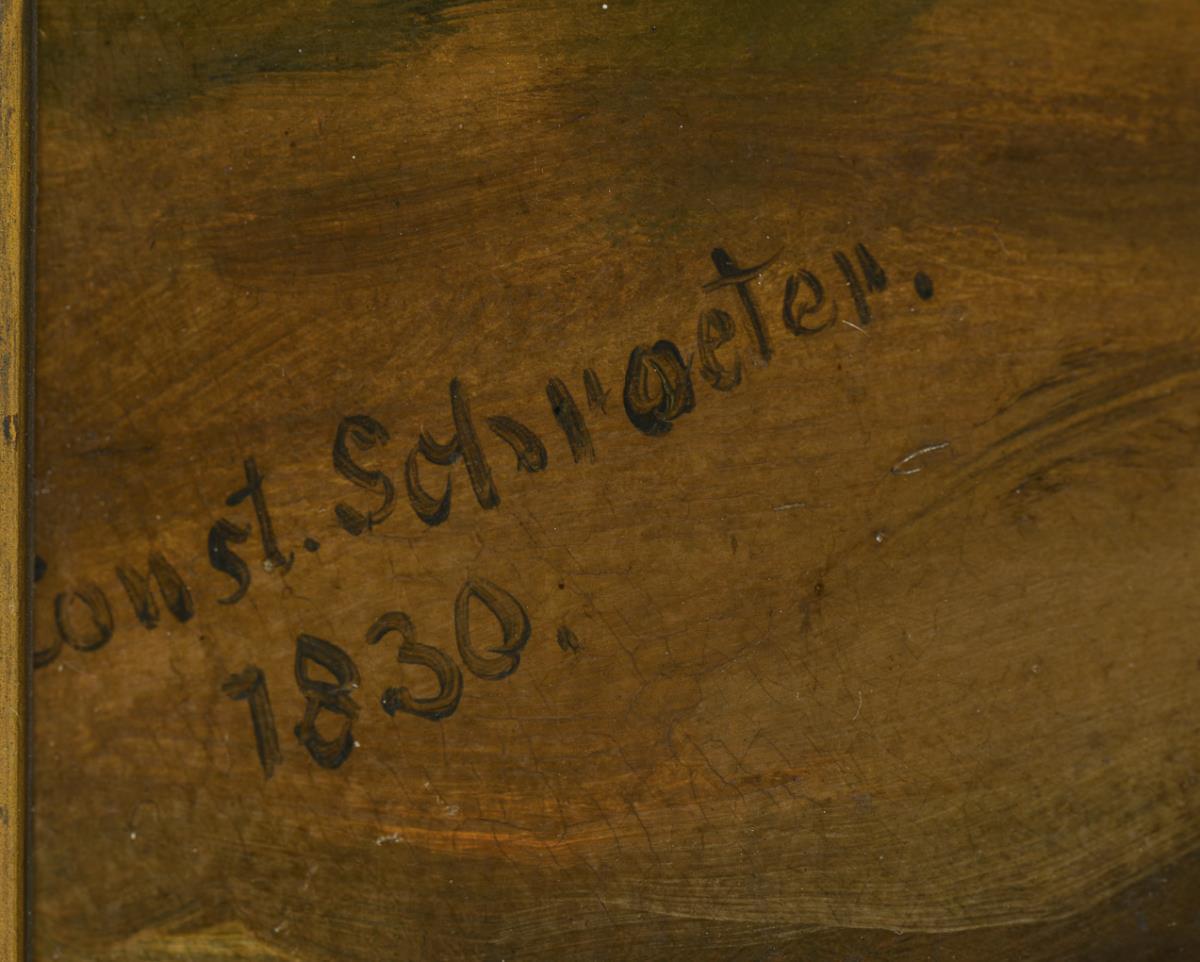 Const. Schroeter.
1830.